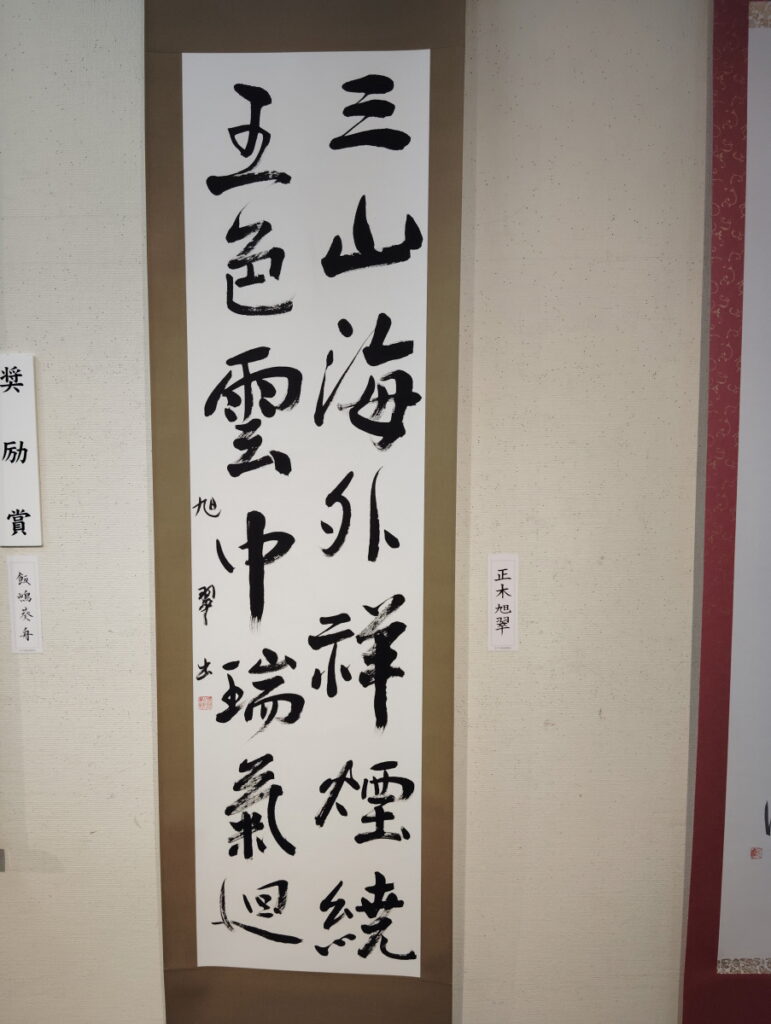 三山海外祥煙繞
五色雲中瑞氣迴
旭翠書
正木旭翠
奨励賞
飯嶋葵舟